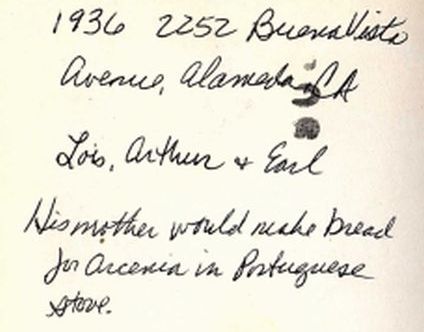 1936 2252 Buena Vista
Avenue, Alameda, CA
Lois, Arthur & Earl
His mother would make bread
for Arcenia in Portuguese
stove.